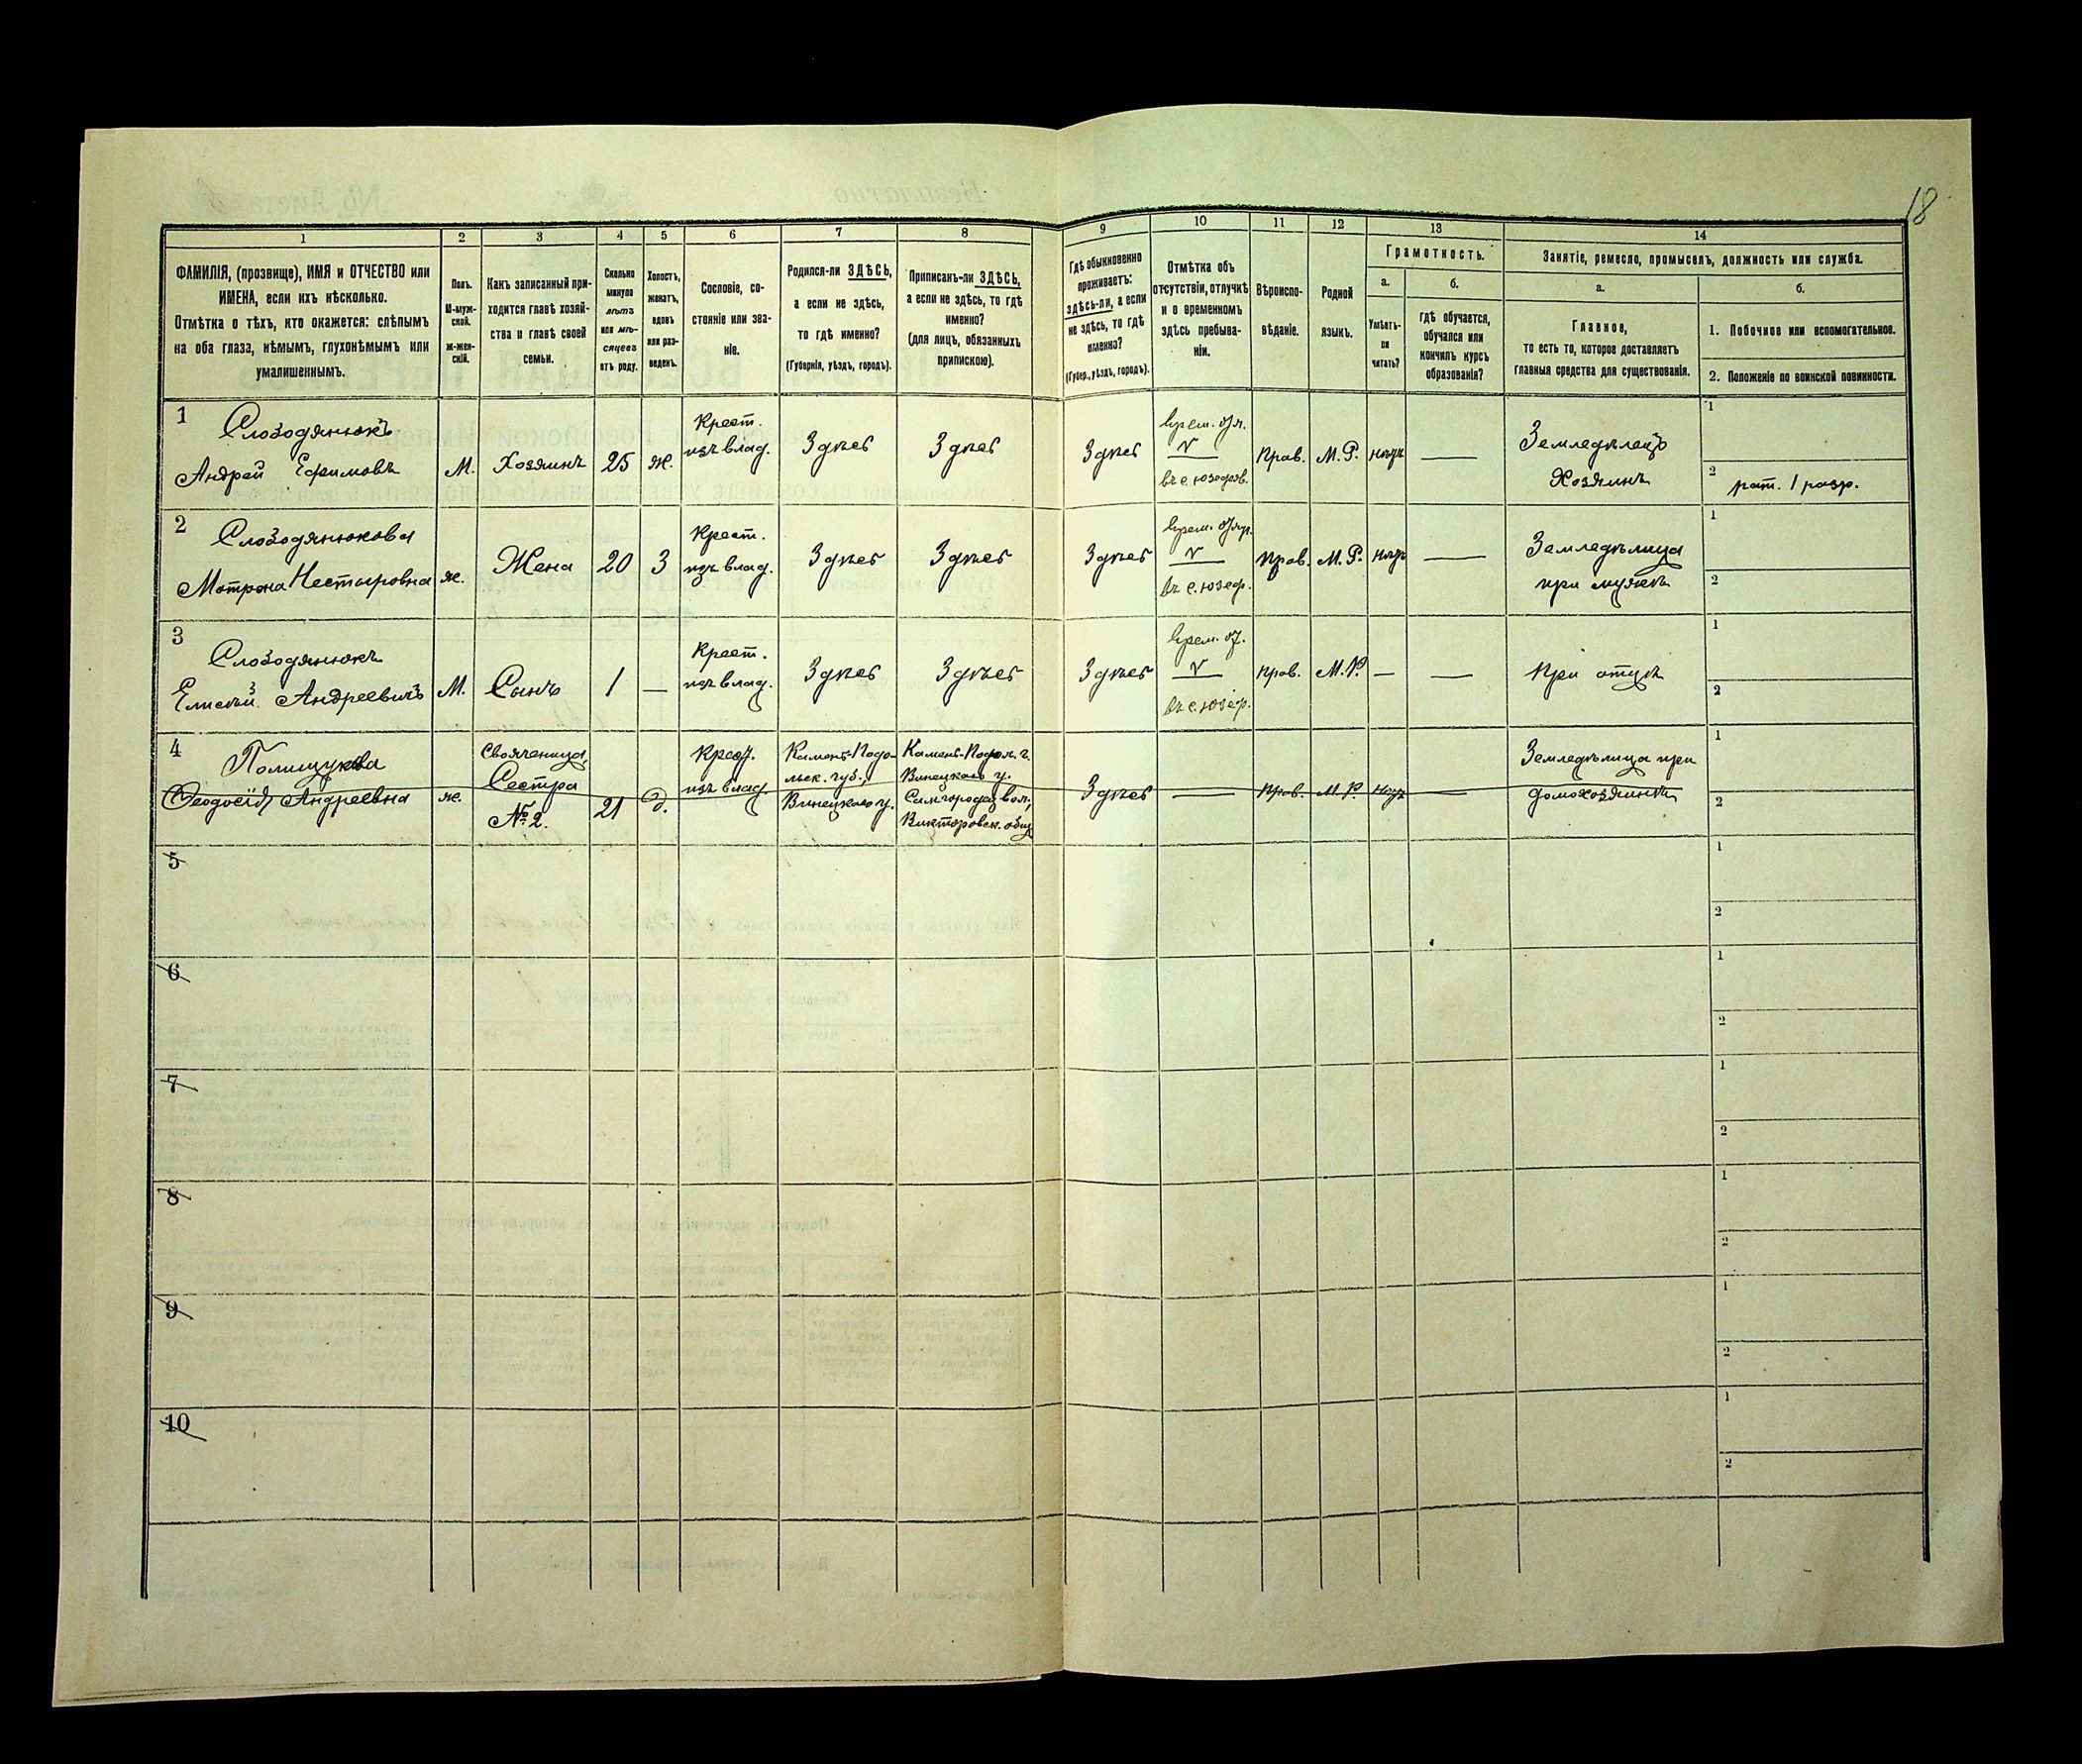 18
1
2
3
4
5
6
7
8
9
10
11
12
13
14
ФАМИЛІЯ, (прозвище), ИМЯ и ОТЧЕСТВО или
ИМЕНА, если ихъ нѣсколько.
Отмѣтка о тѣхъ, кто окажется: слѣпымъ
на оба глаза, нѣмымъ, глухонѣмымъ или
умалишеннымъ.
Полъ.
М-муж-
ской.
ж-жен-
скій.
Какъ записанный при-
ходится главѣ хозяй-
ства и главѣ своей
семьи.
Сколько
минуло
лѣтъ
или мѣ-
сяцевъ
отъ роду.
Холостъ,
женатъ,
вдовъ
или раз-
веденъ.
Сословіе, со-
стояніе или зва-
ніе.
Родился-ли ЗДѢСЬ,
а если не здѣсь,
то гдѣ именно?
(Губернія, уѣздъ, городъ).
Приписанъ-ли ЗДѢСЬ,
а если не здѣсь, то гдѣ
именно?
(для лицъ, обязанныхъ
припискою).
Гдѣ обыкновенно
проживаетъ:
здѣсь-ли, а если
не здѣсь, то гдѣ
именно?
(Губер., уѣздъ, городъ).
Отмѣтка объ
отсутствіи, отлучкѣ
и о временномъ
здѣсь пребыва-
ніи.
Вѣроиспо-
вѣданіе.
Родной
языкъ.
Грамотность.
а.
Умѣетъ-
ли
читать?
б.
гдѣ обучается,
обучался или
кончилъ курсъ
образованія?
Занятіе, ремесло, промыселъ, должность или служба.
а.
Главное,
то есть то, которое доставляетъ
главныя средства для существованія.
б.
1. Побочное или вспомогательное.
2. Положеніе по воинской повинности.
1
Слободянюкъ
Андрей Ефимовъ
М.
Хозяинъ
25
ж.
Крест.
изъ влад.
Здѣсь
Здѣсь
Здѣсь
V
въ с. юзефов.
Прав.
М. Р.
нѣтъ
—
Земледѣлецъ
Хозяинъ
1
2
рат. 1 разр.
2
Слободянюкова
Мотрона Нестыровна
ж.
Жена
20
З
Крест.
изъ влад.
Здѣсь
Здѣсь
Здѣсь
V
въ с. юзеф.
Прав.
М. Р.
нѣтъ
—
Земледѣлица
при мужѣ
1
2
3
Слободянюкъ
Елисѣй Андреевичъ
М.
Сынъ
1
—
Крест.
изъ влад.
Здѣсь
Здѣсь
Здѣсь
V
въ с. юзеф.
Прав.
М. Р.
—
—
При отцѣ
1
2
4
Полищукова
Феодосія Андреевна
ж.
Свояченица,
Сестра
№ 2.
21
д.
Крест.
изъ влад.
Камен-Подо-
льск. губ.,
Винецкаго у.
Камен-Подол. г.
Винецкаго у.
Самгородец. вол.,
Викторовск. общ.
Здѣсь
—
Прав.
М. Р.
нѣтъ
—
Земледѣлица при
домохозяинѣ
1
2
5
1
2
6
1
2
7
1
2
8
1
2
9
1
2
10
1
2